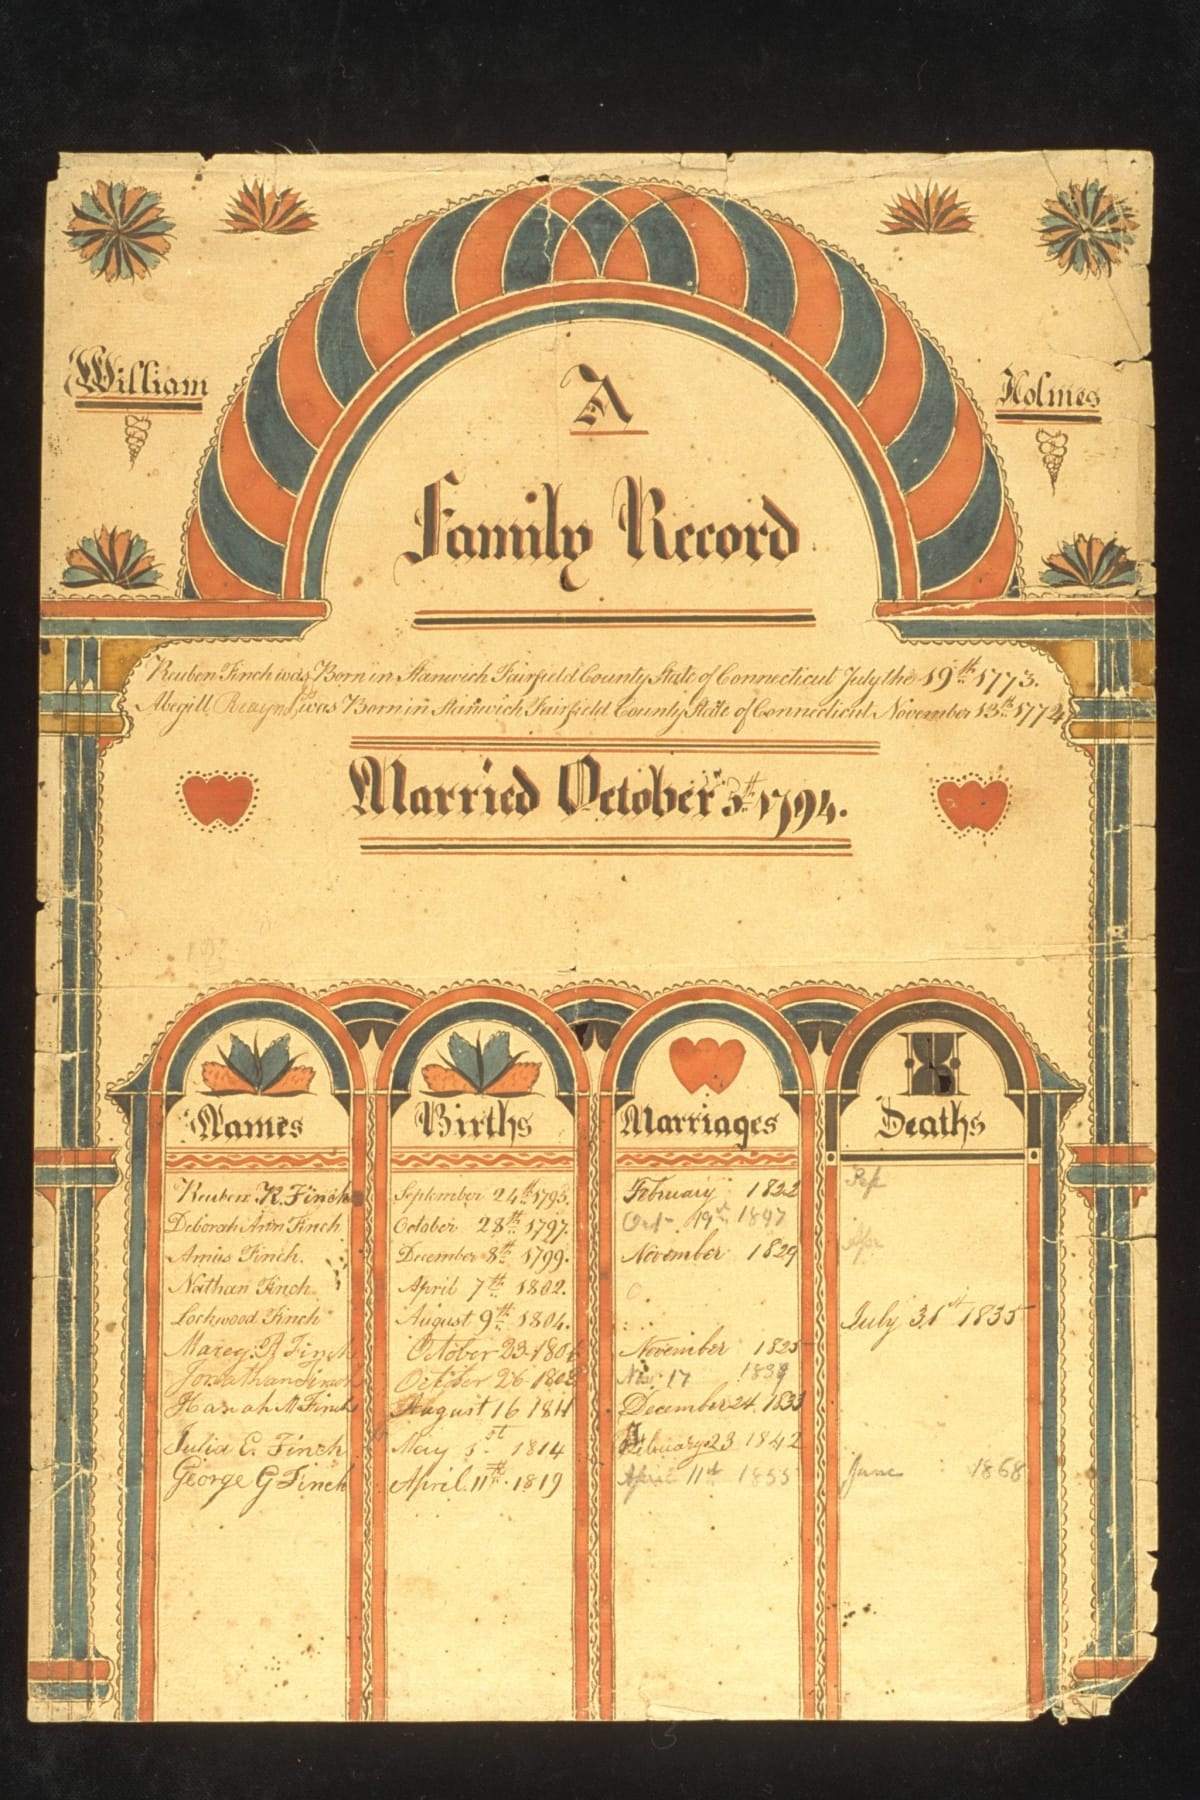 William
Holmes
A
Family Record
Reuben Finch was Born in Stanwich Fairfield County State of Connecticut July the 19th 1773.
Abegill was Born in Stanwich Fairfield County State of Connecticut November 13th 1774
Married October 5th 1794.
Names Births Marriages Deaths
Reuben R. Finch September 24th 1795. February 1822
Deborah Ann Finch October 28th 1797. 19th 1847
Amus Finch. December 8th 1799. November 1829
Nathan Finch April 7th 1802.
Lockwood Finch August 9th 1804. July 31st 1835
Marey. R Finch October 23 1806 November 1825
Jonathan Finch October 26 1808 17 1839
Hanah M Finch August 16 1811 December 24 1833
Julia E. Finch May 5st 1814 February 23 1842
George G Finch April 11th 1819 April 11th 1855 June 1868